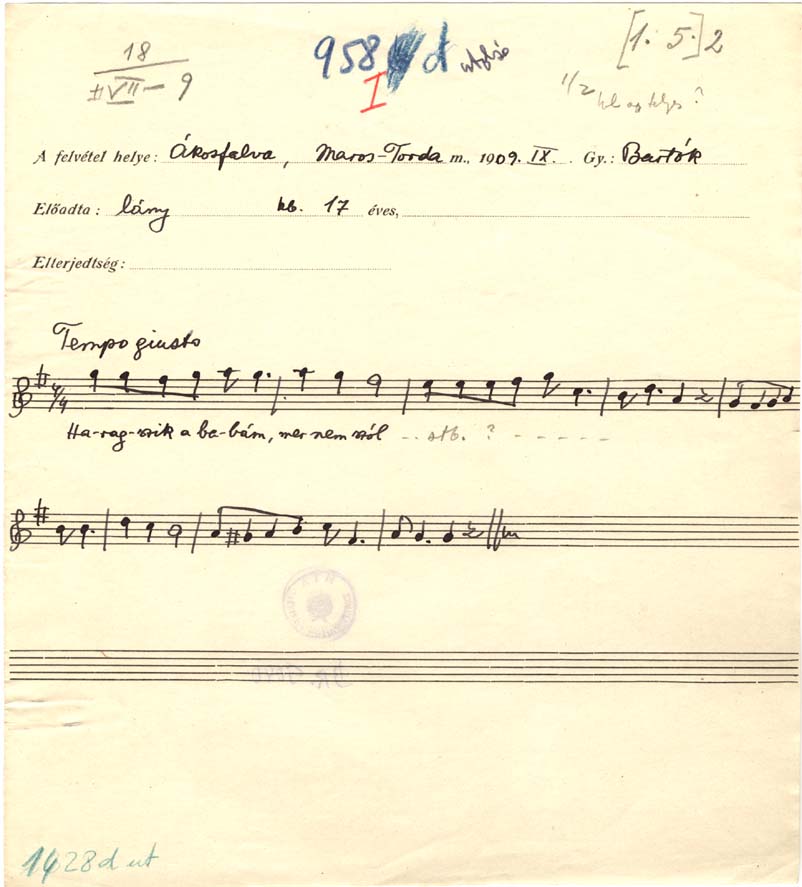 18
#VII - 9
958 d utolsó
I
[1. 5.] 2
1/2
A felvétel helye: Ákosfalva, Maros-Torda m., 1909. IX. Gy.: Bartók
Előadta: lány kb. 17 éves,
Elterjedtség:
Tempo giusto
4/4
Ha-rag-szik a ba-bám, mer nem szól - - stb. ? - - - - -
1428 d ut